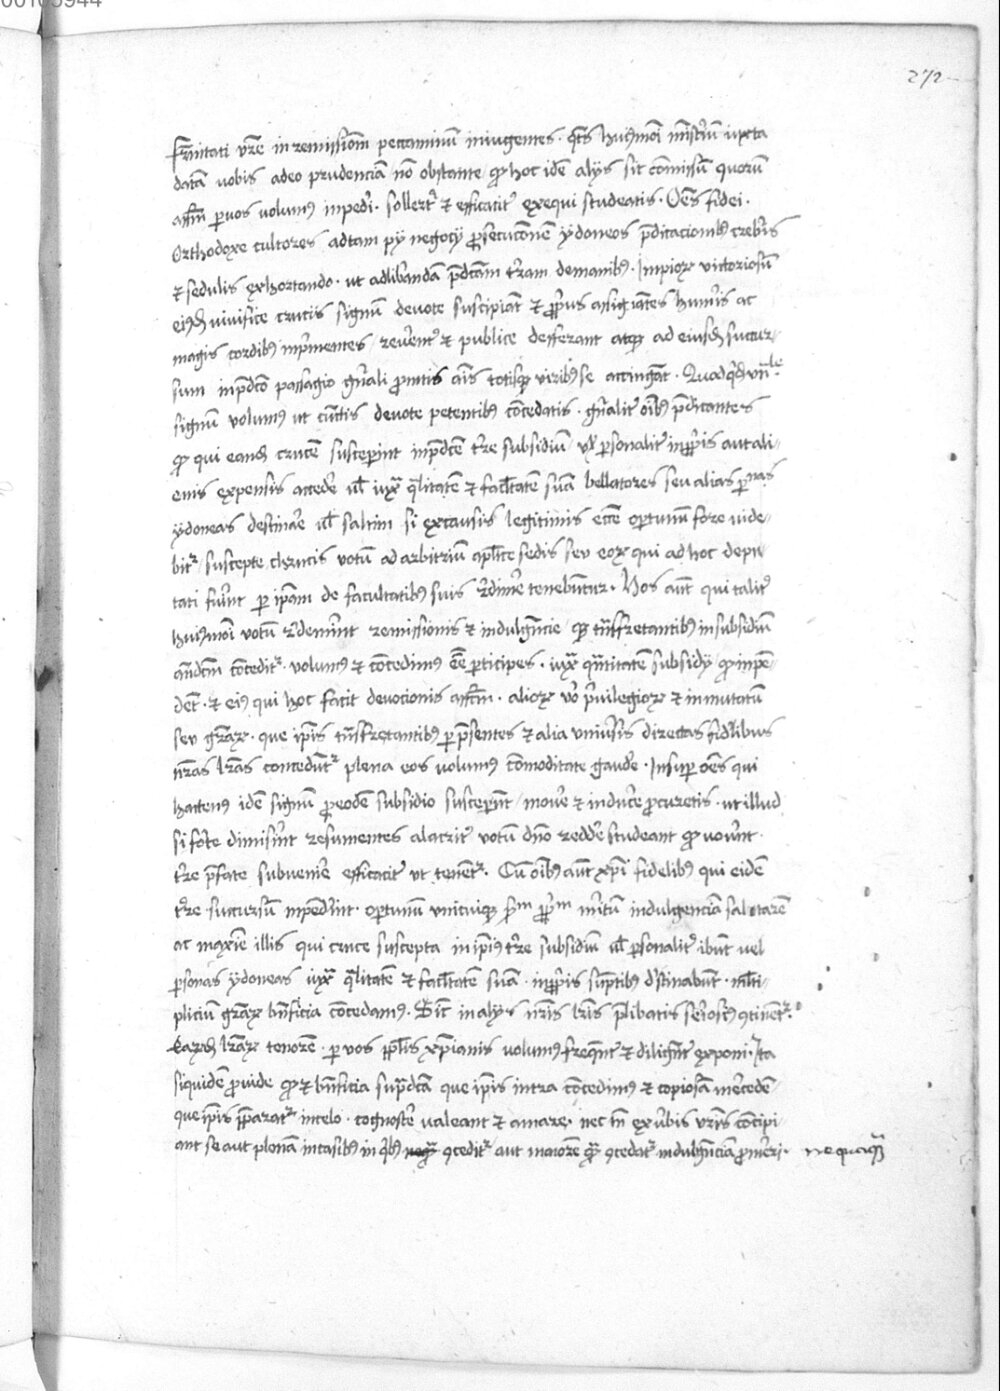 00105944
272
frnitati vre in remissiom peccaminu iniugentes. qts huiusmoi misteriu iuxta
datam uobis a deo prudenciam no obstante quod hoc ide alijs sit commissum quorum
affcm per vos volumus inpediri. sollerter et efficaciter exequi studeatis. Oes fidei.
Orthodoxe cultores ad tam pij negocij prosecucionem ydoneos predicacionibus crebris
et sedulis exhortando. ut ad liberandam predcam terram de manibus. Impiorum victoriosum
eiusdem vivifice crucis signum devote suscipiant et proprijs affigentes humeris ac
magis cordibus inprimentes reverenter et publice defferant atque ad eiusdem succur-
sum in predco passagio gnerali promtis ais totisque viribus se accingant. Quod quidem
signum volumus ut cunctis devote petentibus concedatis. gneraliter oibus predicantes
quod qui eandem crucem susceperint in predce tre subsidium vel personaliter in proprijs aut ali-
enis expensis accedere vel iuxta qualitatem et facultatem suam bellatores seu alias personas
ydoneas destinare vel saltim si ex causis legitimis esse oportunum fore vide-
bitur suscepte crucis votum ad arbitrium aplice sedis seu eorum qui ad hoc depu
tati fuerint per ipsam de facultatibus suis redimere tenebuntur. Nos aut qui taliter
huiusmoi votum redemerint remissionis et indulgencie que transfretantibus in subsidium
conceditur. volumus et concedimus esse participes. iuxta quantitatem subsidij quod inpen-
dent. et eius qui hoc facit devocionis affcm. aliorum vero privilegiorum et inmunitatum
seu grarum. que ipsis transfretantibus per presentes et alia universis directas fidelibus
nras lras conceduntur plena eos volumus commoditate gaudere. Insuper oes qui
hactenus idem signum pro eodem subsidio susceperunt movere et inducere procuretis. ut illud
si forte dimiserint resumentes alacriter votum dno reddere studeant quod voverunt.
tre prefate subvenire efficaciter ut tenentur. Cum oibus aut xpi fidelibus qui eidem
tre succursum inpenderint. oportunum unicuique secundum proprium meritum indulgenciam salutarem
ac maxime illis qui cruce suscepta in ipsius tre subsidium vel personaliter ibunt vel
personas ydoneas iuxta qualitatem et facultatem suam. in proprijs sumptibus destinabunt. multi-
plicium grarum beneficia concedamus. Sicut in alijs nris lris prelibatis seriosius continetur.
Earundem lrarum tenorem. per vos populis xpianis volumus frequenter et diligenter exponi. Ita
siquidem provide quod et beneficia supradca que ipsis intra concedimus et copiosam mercedem
que ipsis preparatur in celo. cognoscere valeant et amare. nec tamen ex verbis vris concipi
ant se aut plenam in casibus in quibus conceditur aut maiorem quam concedatur indulgenciam promereri. nequaquam